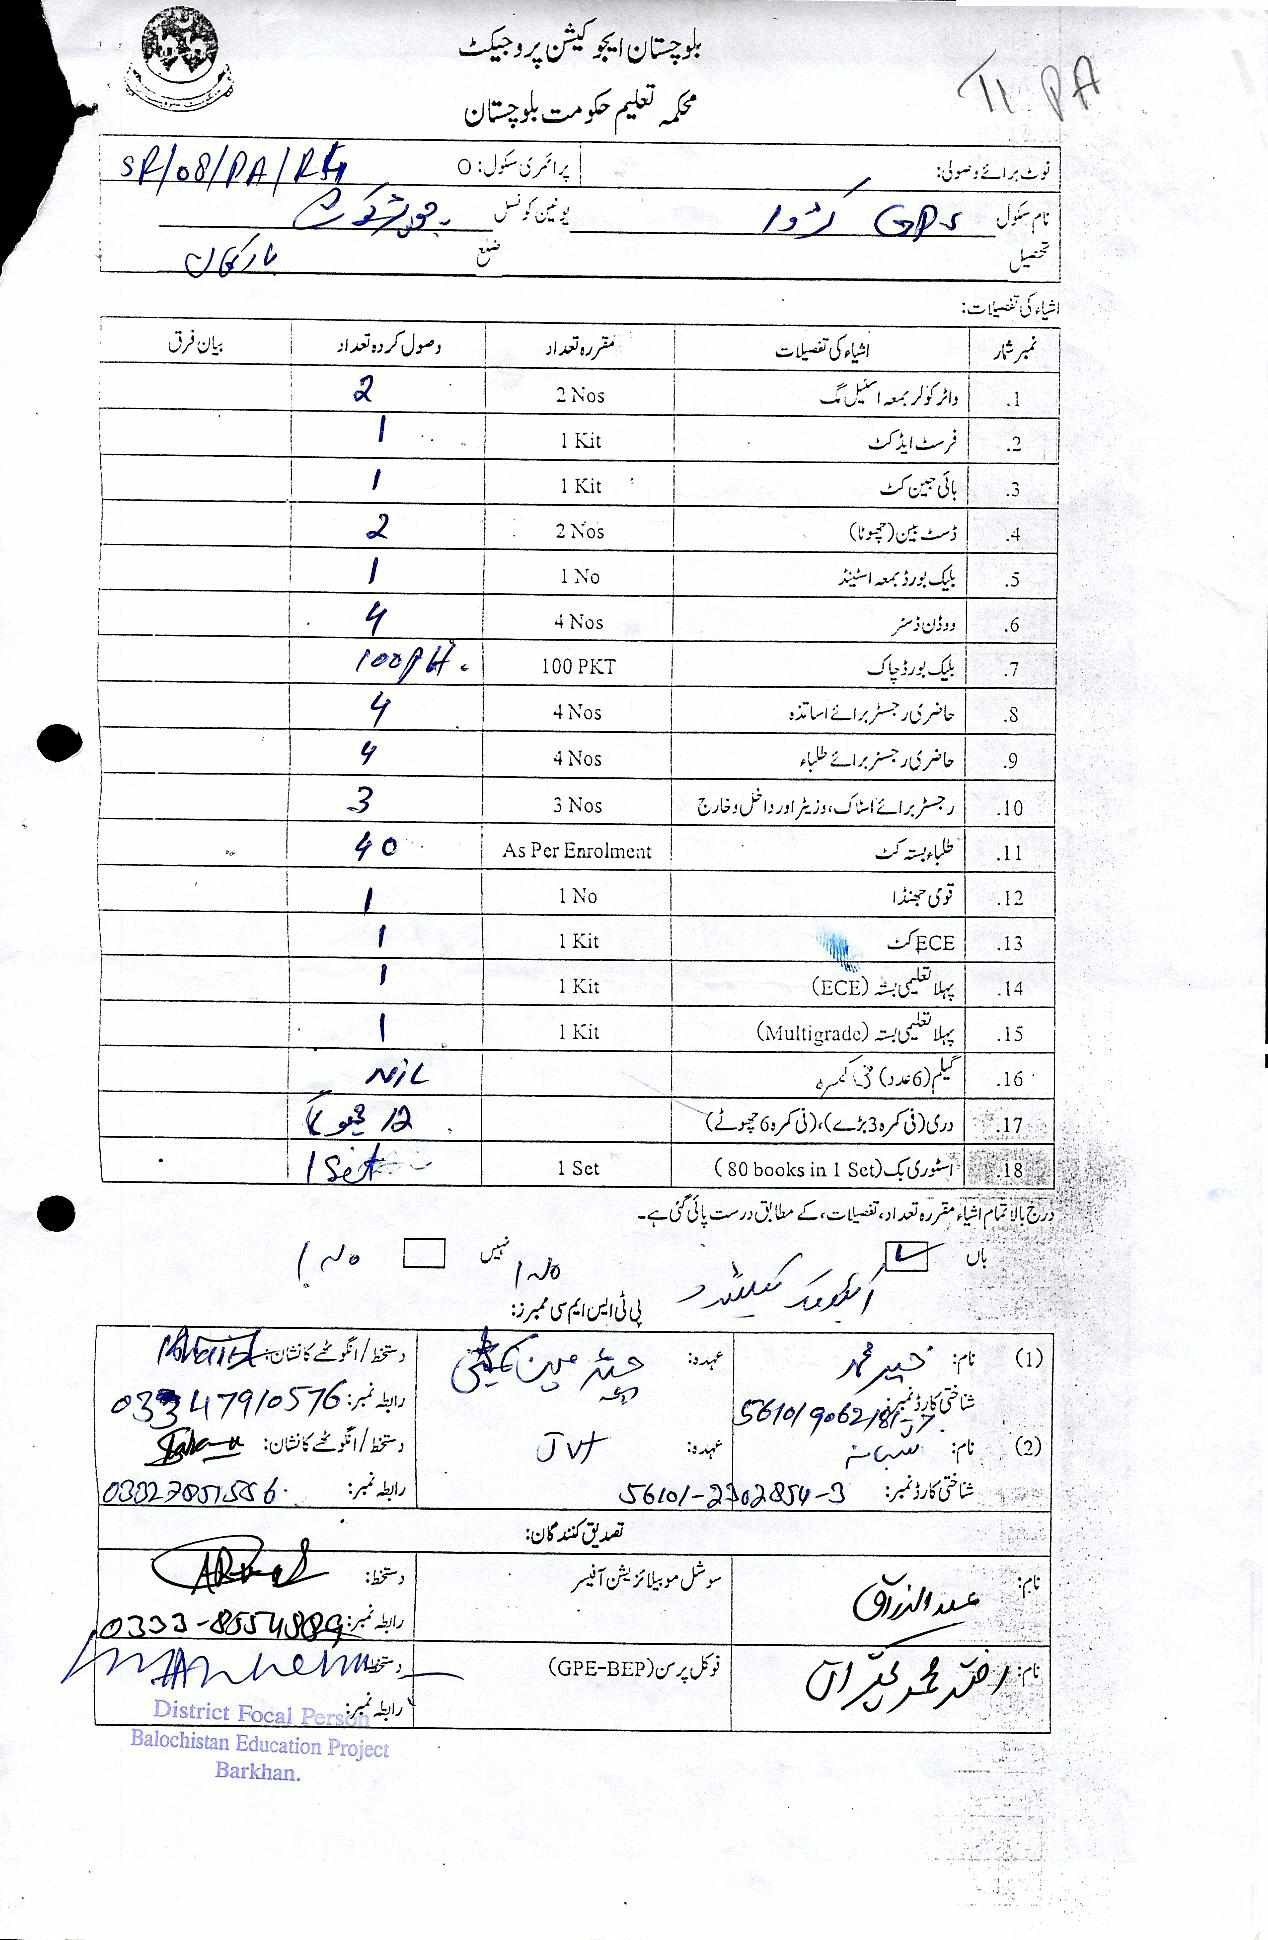 بلوچستان ایجوکیشن پروجیکٹ
محکمہ تعلیم حکومت بلوچستان
TI PA
نوٹ برائے وصولی: پرائمری سکول: O SR/08/PA/
نام سکول GPS یونین کونسل
تحصیل ضلع بارکھان
اشیاء کی تفصیلات:
نمبر شمار اشیاء کی تفصیلات مقررہ تعداد وصول کردہ تعداد بیان فرق
1. واٹر کولر بمعہ اسٹیل مگ 2 Nos 2
2. فرسٹ ایڈ کٹ 1 Kit 1
3. ہائی جین کٹ 1 Kit 1
4. ڈسٹ بین (چھوٹا) 2 Nos 2
5. بلیک بورڈ بمعہ اسٹینڈ 1 No 1
6. ووڈن ڈسٹر 4 Nos 4
7. بلیک بورڈ چاک 100 PKT 100 Pkt.
8. حاضری رجسٹر برائے اساتذہ 4 Nos 4
9. حاضری رجسٹر برائے طلباء 4 Nos 4
10. رجسٹر برائے اسٹاک، وزیٹر اور داخل و خارج 3 Nos 3
11. طلباء بستہ کٹ As Per Enrolment 40
12. قومی جھنڈا 1 No 1
13. ECE کٹ 1 Kit 1
14. پہلا تعلیمی بستہ (ECE) 1 Kit 1
15. پہلا تعلیمی بستہ (Multigrade) 1 Kit 1
16. گیلم (6 عدد) فی کمرہ NIL
17. دری (فی کمرہ 3 بڑے)، (فی کمرہ 6 چھوٹے) 12
18. اسٹوری بک (80 books in 1 Set) 1 Set 1 Set
درج بالا تمام اشیاء مقررہ تعداد، تفصیلات، کے مطابق درست پائی گئی ہے۔
ہاں نہیں
پی ٹی ایس ایم سی ممبرز:
(1) نام: خیر محمد عہدہ: دستخط/انگوٹھے کا نشان:
شناختی کارڈ نمبر: رابطہ نمبر: 03347910576
(2) نام: شبانہ عہدہ: JVT دستخط/انگوٹھے کا نشان:
شناختی کارڈ نمبر: 56101-2302854-3 رابطہ نمبر:
تصدیق کنندگان:
نام: عبدالرزاق سوشل موبیلائزیشن آفیسر دستخط:
رابطہ نمبر: 0333-8554889
نام: اختر محمد فوکل پرسن (GPE-BEP) دستخط
رابطہ نمبر:
District Focal Person
Balochistan Education Project
Barkhan.